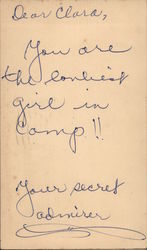 Dear Clara,
You are
the lonliest
girl in
Camp!!
Your secret
admirer